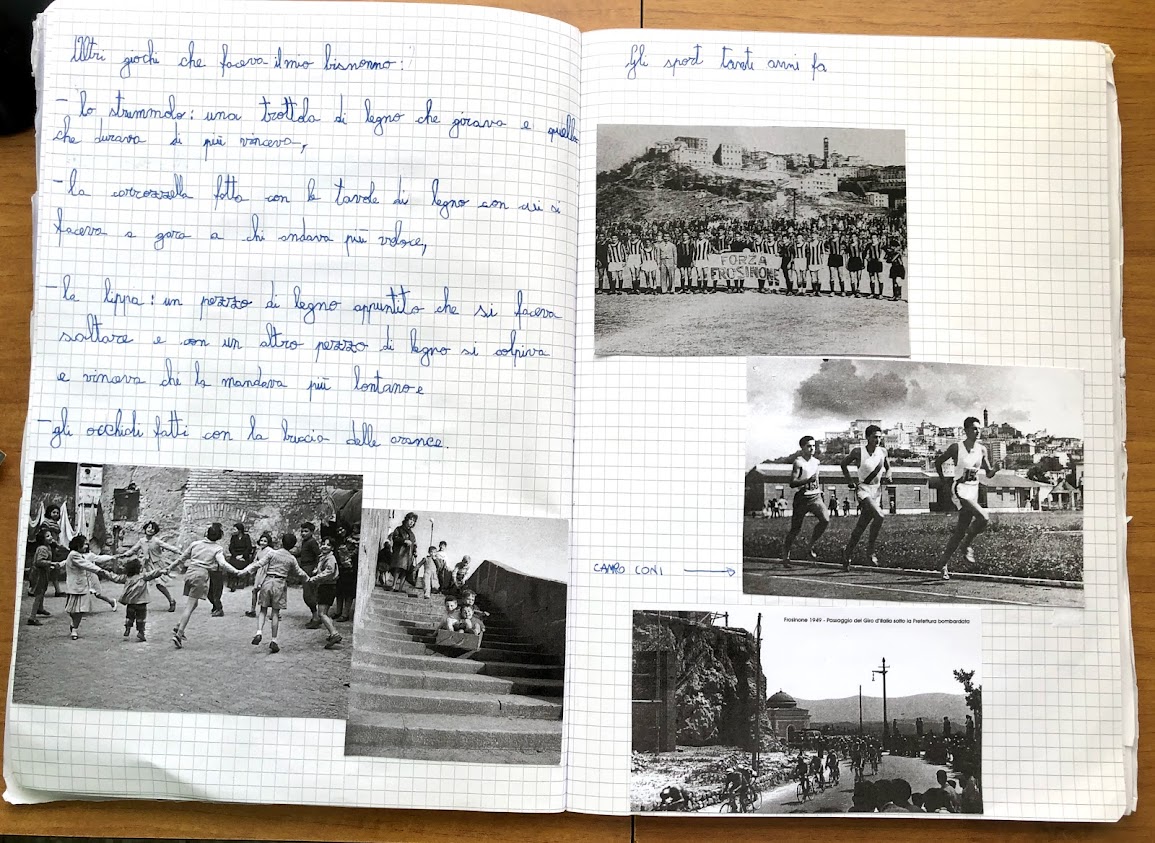 Altri giochi che faceva il mio bisnonno:
- lo strummolo: una trottola di legno che girava e quella
che durava di più vinceva,
- la carrozzella fatta con le tavole di legno con cui si
faceva a gara a chi andava più veloce,
- la lippa: un pezzo di legno appuntito che si faceva
saltare e con un altro pezzo di legno si colpiva
e vinceva chi la mandava più lontano e
- gli occhiali fatti con la buccia delle arance.
Gli sport tanti anni fa
FORZA
FROSINONE
CAMPO CONI
Frosinone 1949 - Passaggio del Giro d'Italia sotto la Prefettura bombardata